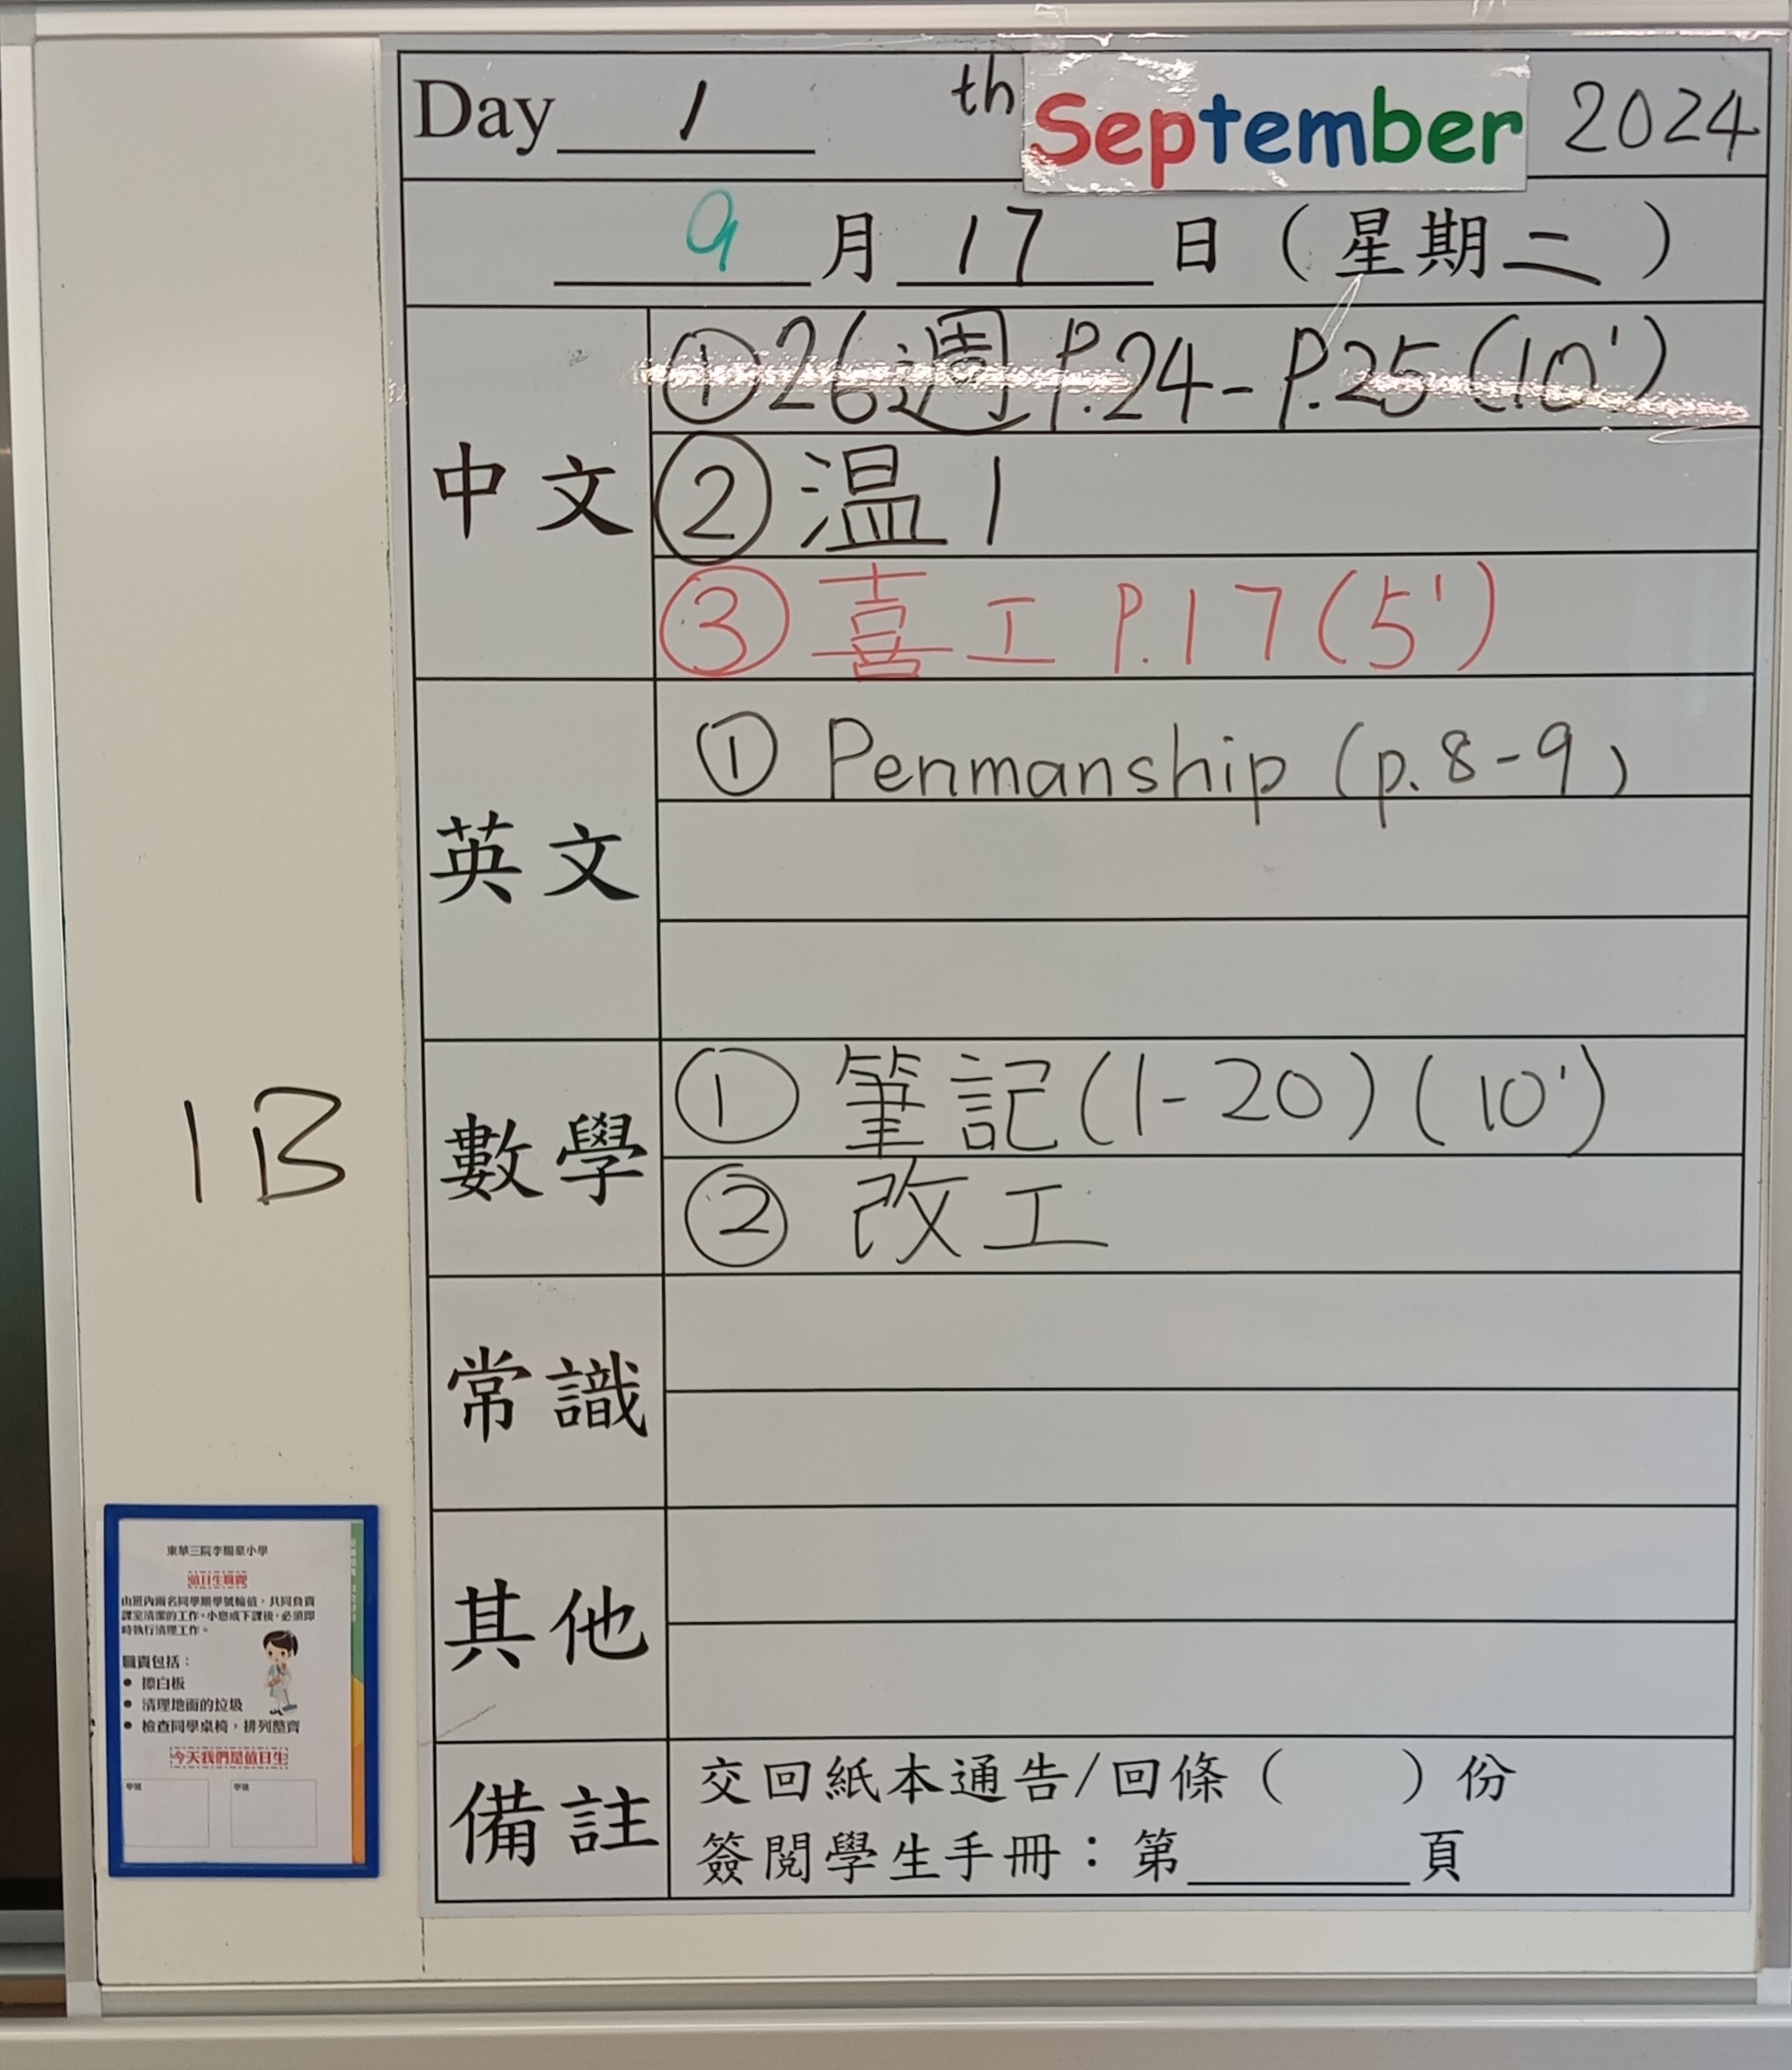 Day 1 th September 2024
9 月 17 日（星期二）
中文
① 26週 P.24-P.25(10')
② 温1
③ 喜工 P.17(5')
英文
① Penmanship (p.8-9)
數學
① 筆記(1-20)(10')
② 改工
常識
其他
備註
交回紙本通告/回條（ ）份
簽閱學生手冊：第 頁
1B
東華三院李賜豪小學
值日生職責
由班內兩名同學順學號輪值，共同負責
課室清潔的工作。小息或下課後，必須即
時執行清理工作。
職責包括：
● 擦白板
● 清理地面的垃圾
● 檢查同學桌椅，排列整齊
今天我們是值日生
學號 學號